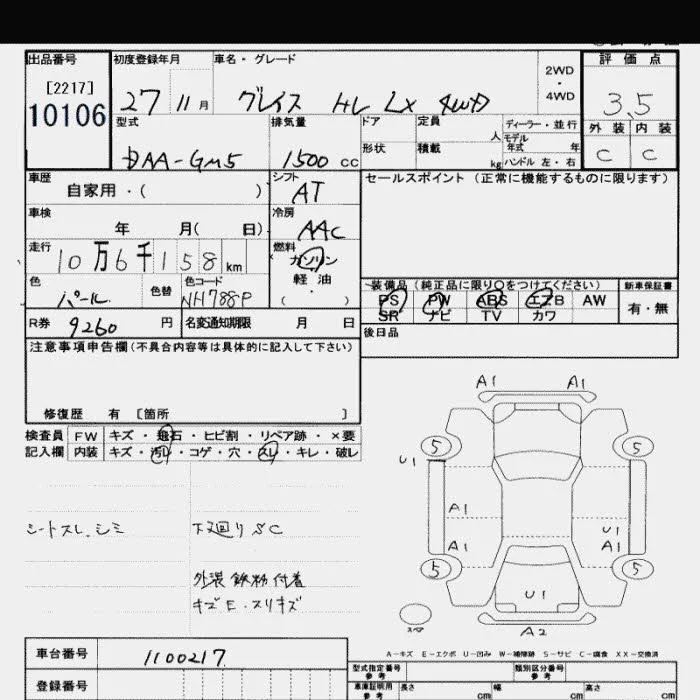 出品番号
[2217]
10106
初度登録年月
27 11 月
車名・グレード
グレイス HV LX 4WD
2WD
・
4WD
評価点
3.5
外装 内装
C C
型式
DAA-GM5
排気量
1500 cc
ドア
形状
定員
人
積載
kg
ディーラー・並行
モデル
年式 年
ハンドル 左・右
車歴
自家用・( )
シフト
AT
セールスポイント (正常に機能するものに限ります)
車検
年 月( 日)
冷房
AAC
走行
10万6千158 km
燃料
ガソリン
軽油
( )
色
パール
色替
色コード
NH788P
装備品 (純正品に限り○をつけてください)
PS PW ABS エアB AW
SR ナビ TV カワ
新車保証書
有・無
R券
9260 円
名変通知期限 月 日
後日品
注意事項申告欄(不具合内容等は具体的に記入して下さい)
修復歴 有 〔箇所 〕
検査員 FW キズ・飛石・ヒビ割・リペア跡・×要
記入欄 内装 キズ・汚レ・コゲ・穴・スレ・キレ・破レ
シートスレ、シミ
下廻りSC
外装 鉄粉付着
キズE・スリキズ
A1 A1
5 5
U1
A1
U1
A1 A1
5 5
U1
スペア
A2
A-キズ E-エクボ U-凹み W-補修跡 S-サビ C-腐食 XX-交換済
車台番号
1100217
登録番号
型式指定番号
参考
類別区分番号
参考
車庫証明用
参考
長さ cm
幅 cm
高さ cm